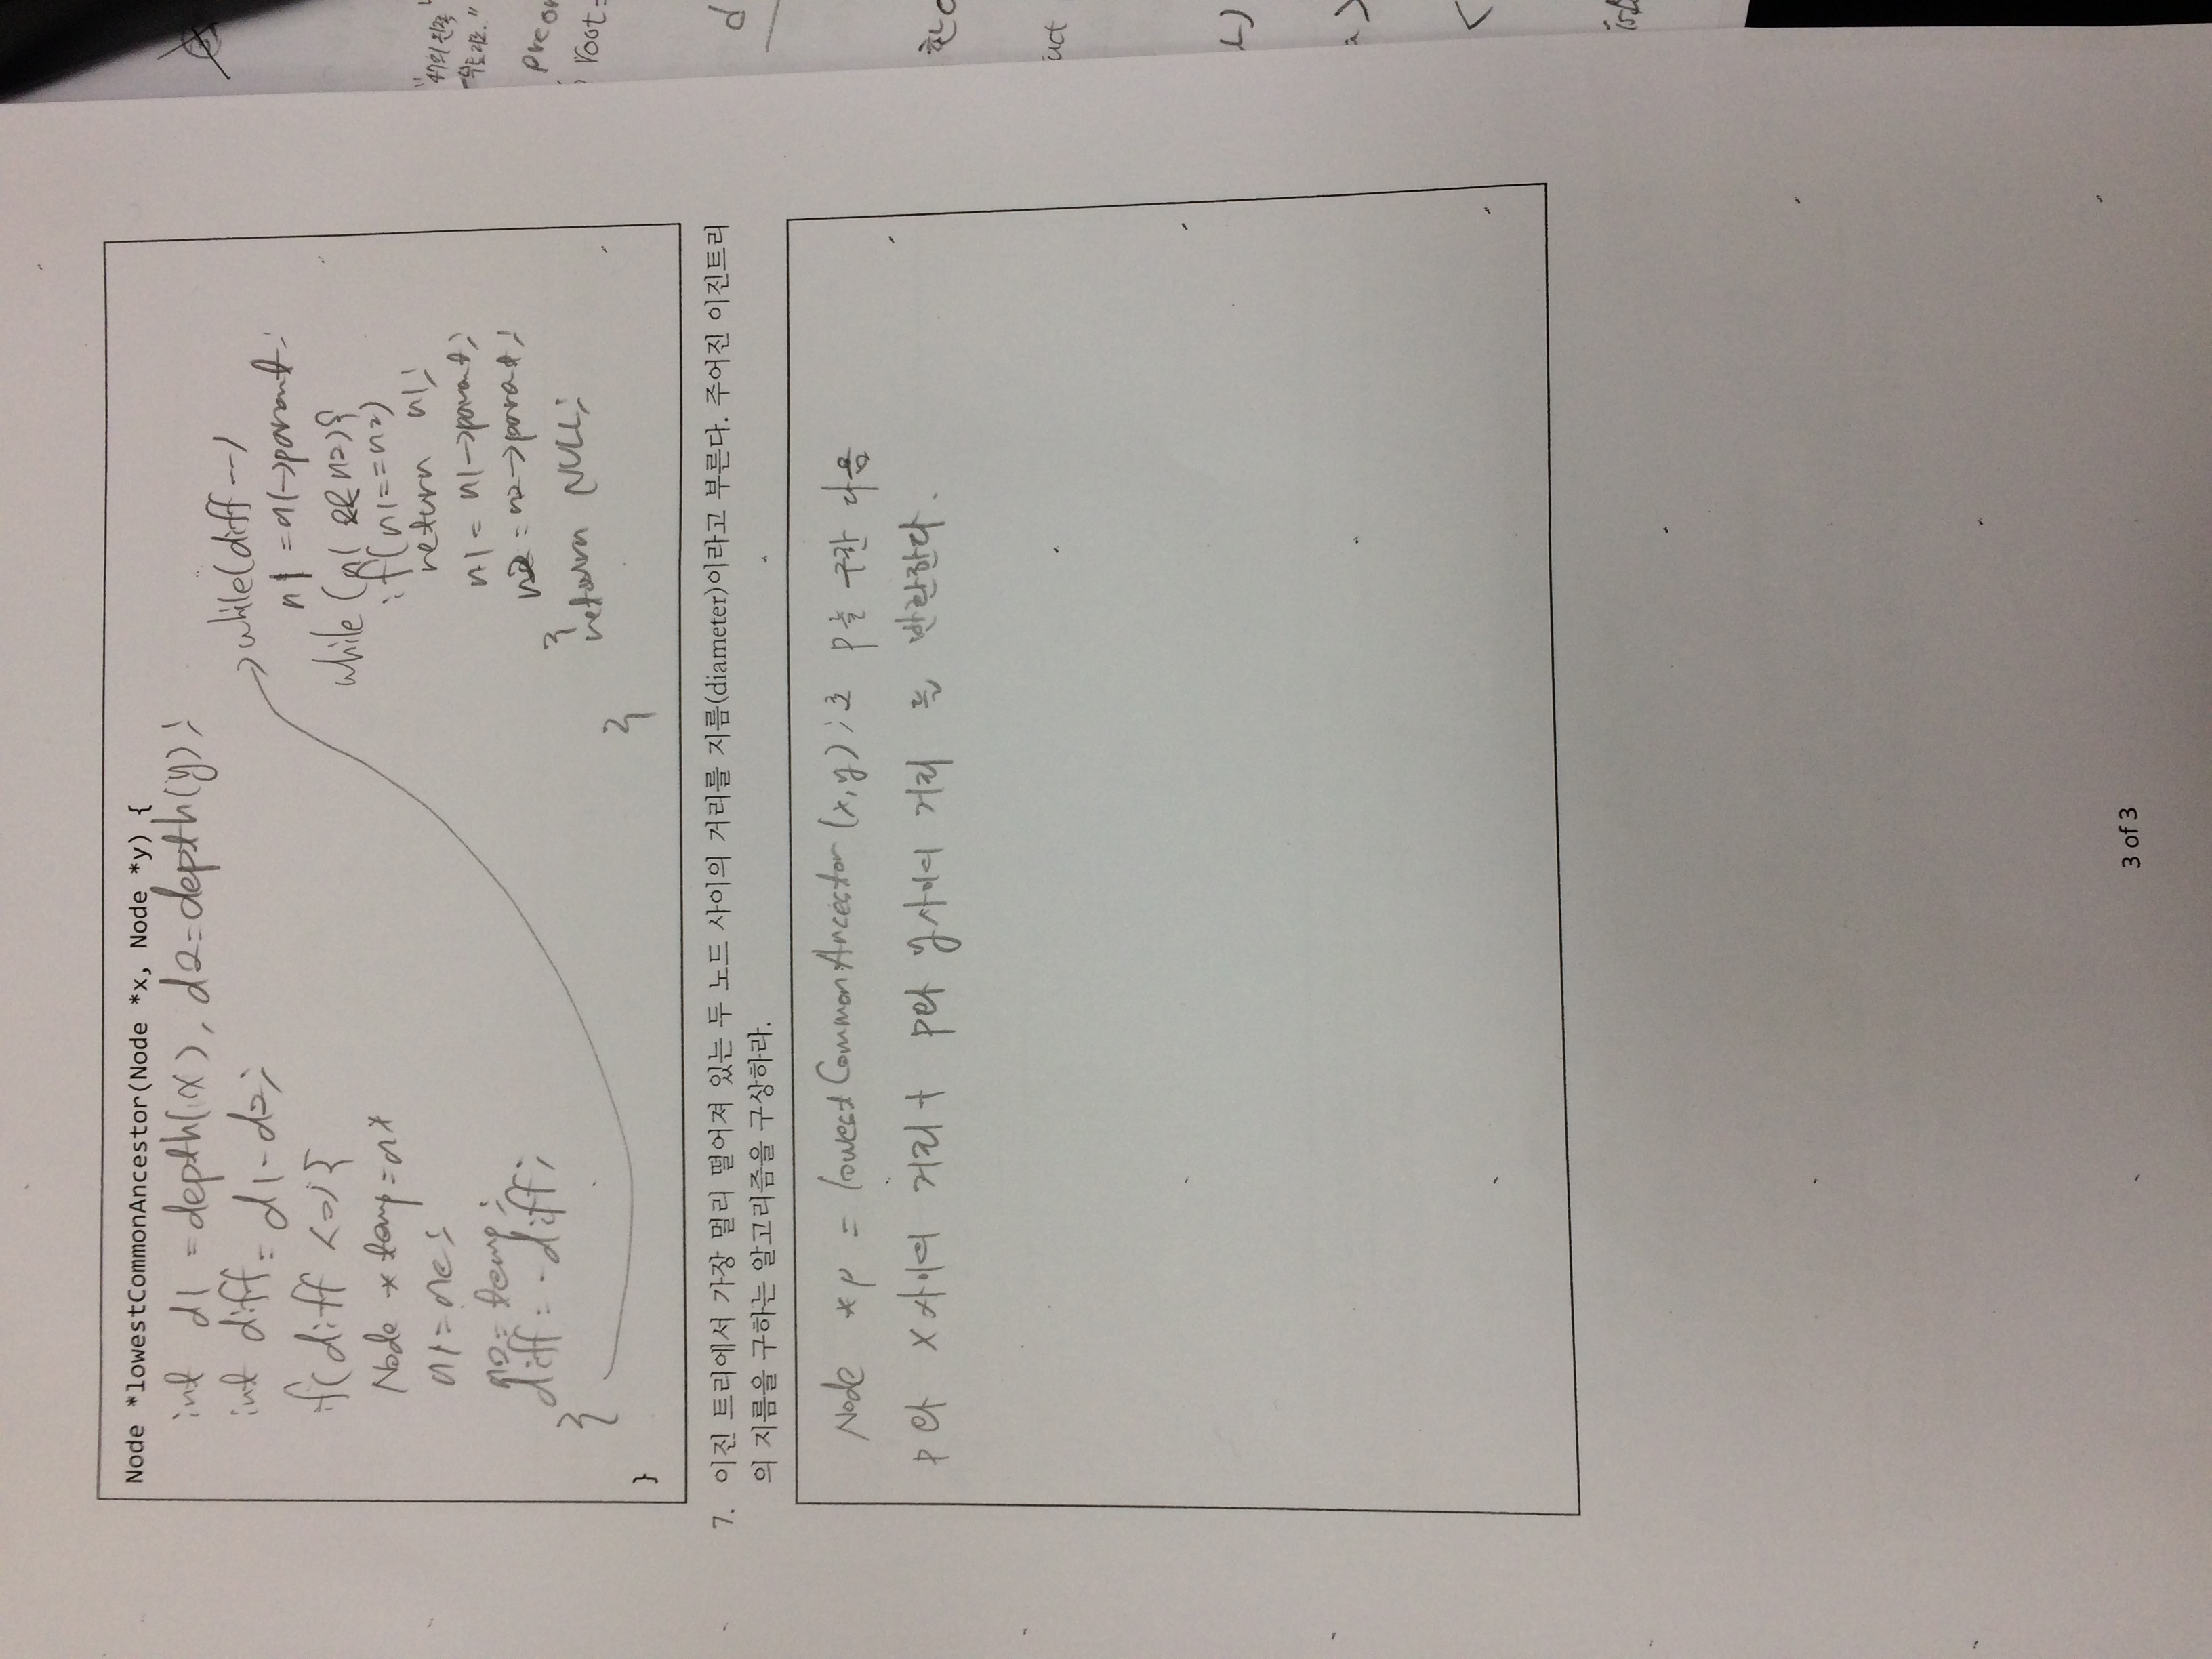 Node *lowestCommonAncestor(Node *x, Node *y) {
int d1 = depth(x), d2=depth(y);
int diff = d1-d2;
if(diff <0){
Node *temp=n*
n1=ne;
n2=temp;
diff=-diff;
}
while(diff--)
n1 =n1->parent;
while (n1 && n2){
if(n1==n2)
return n1;
n1 = n1->parent;
n2 = n2->parent;
}
return NULL;
}
}
7. 이진 트리에서 가장 멀리 떨어져 있는 두 노드 사이의 거리를 지름(diameter)이라고 부른다. 주어진 이진트리
의 지름을 구하는 알고리즘을 구상하라.
Node *p = lowestCommonAncestor(x,y);로 p를 구한 다음
p와 x사이의 거리+ p와 y사이의 거리 를 반환한다.
3 of 3
"47의 왼쪽
root=